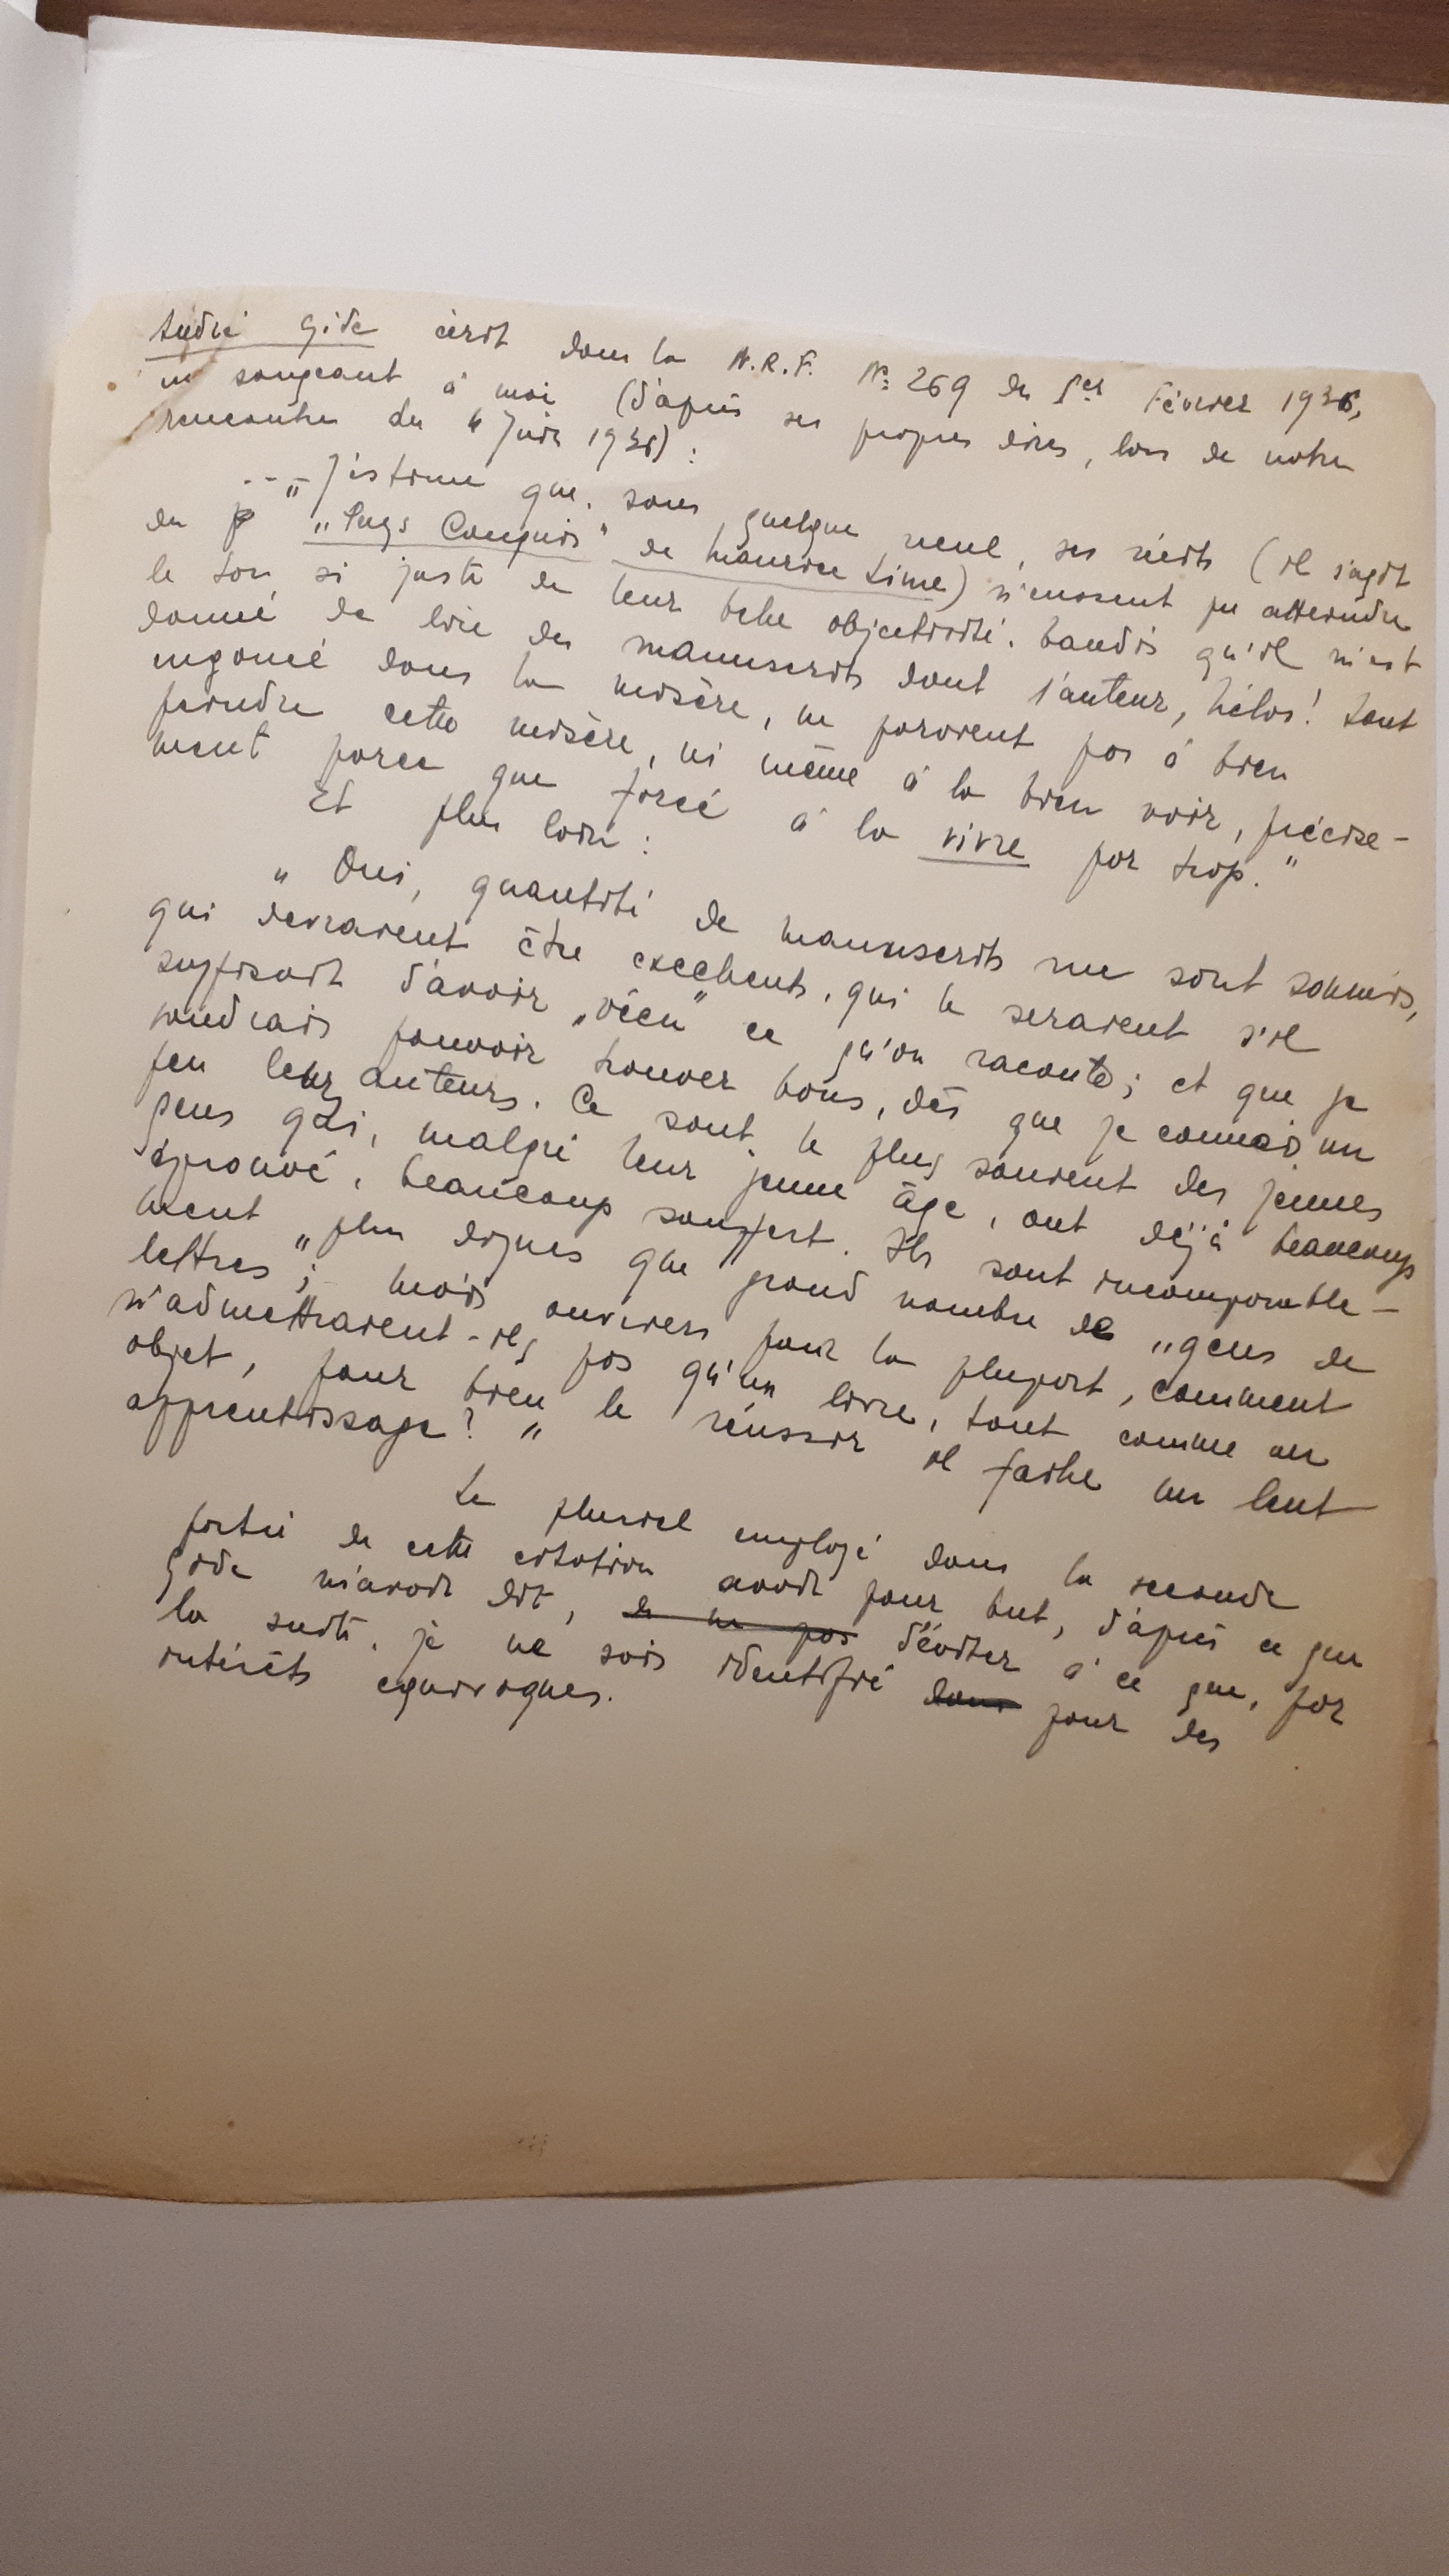 André Gide écrit dans la N.R.F. No 269 du 1er Février 1936,
en songeant à moi (d'après ses propres dires, lors de notre
rencontre du 4 Juin 1936) :
... „J'estime que, sans quelque recul, ses récits (il s'agit
du p „Pays Conquis" de Maurice Lime) n'eussent pu atteindre
le ton si juste de leur belle objectivité. tandis qu'il m'est
donné de lire des manuscrits dont l'auteur, hélas! tout
engoncé dans la misère, ne parvient pas à bien
peindre cette misère, ni même à la bien voir, précisé-
ment parce que forcé à la vivre par trop."
Et plus loin :
„ Oui, quantité de manuscrits me sont soumis,
qui devraient être excellents, qui le seraient s'il
suffisait d'avoir „vécu" ce qu'on raconte; et que je
voudrais pouvoir trouver bons, dès que je connais un
peu leurs auteurs. Ce sont, le plus souvent des jeunes
gens qui, malgré leur jeune âge, ont déjà beaucoup
éprouvé, beaucoup souffert. Ils sont incomparable-
ment plus dignes que grand nombre de „gens de
lettres"; mais ouvriers pour la plupart, comment
n'admettraient-ils pas qu'un livre, tout comme un
objet, pour bien le réussir il faille un lent
apprentissage? "
Le pluriel employé dans la seconde
partie de cette citation avait pour but, d'après ce que
Gide m'avait dit, de ne pas d'éviter à ce que, par
la suite, je ne sois identifié dans pour des
intérêts équivoques.